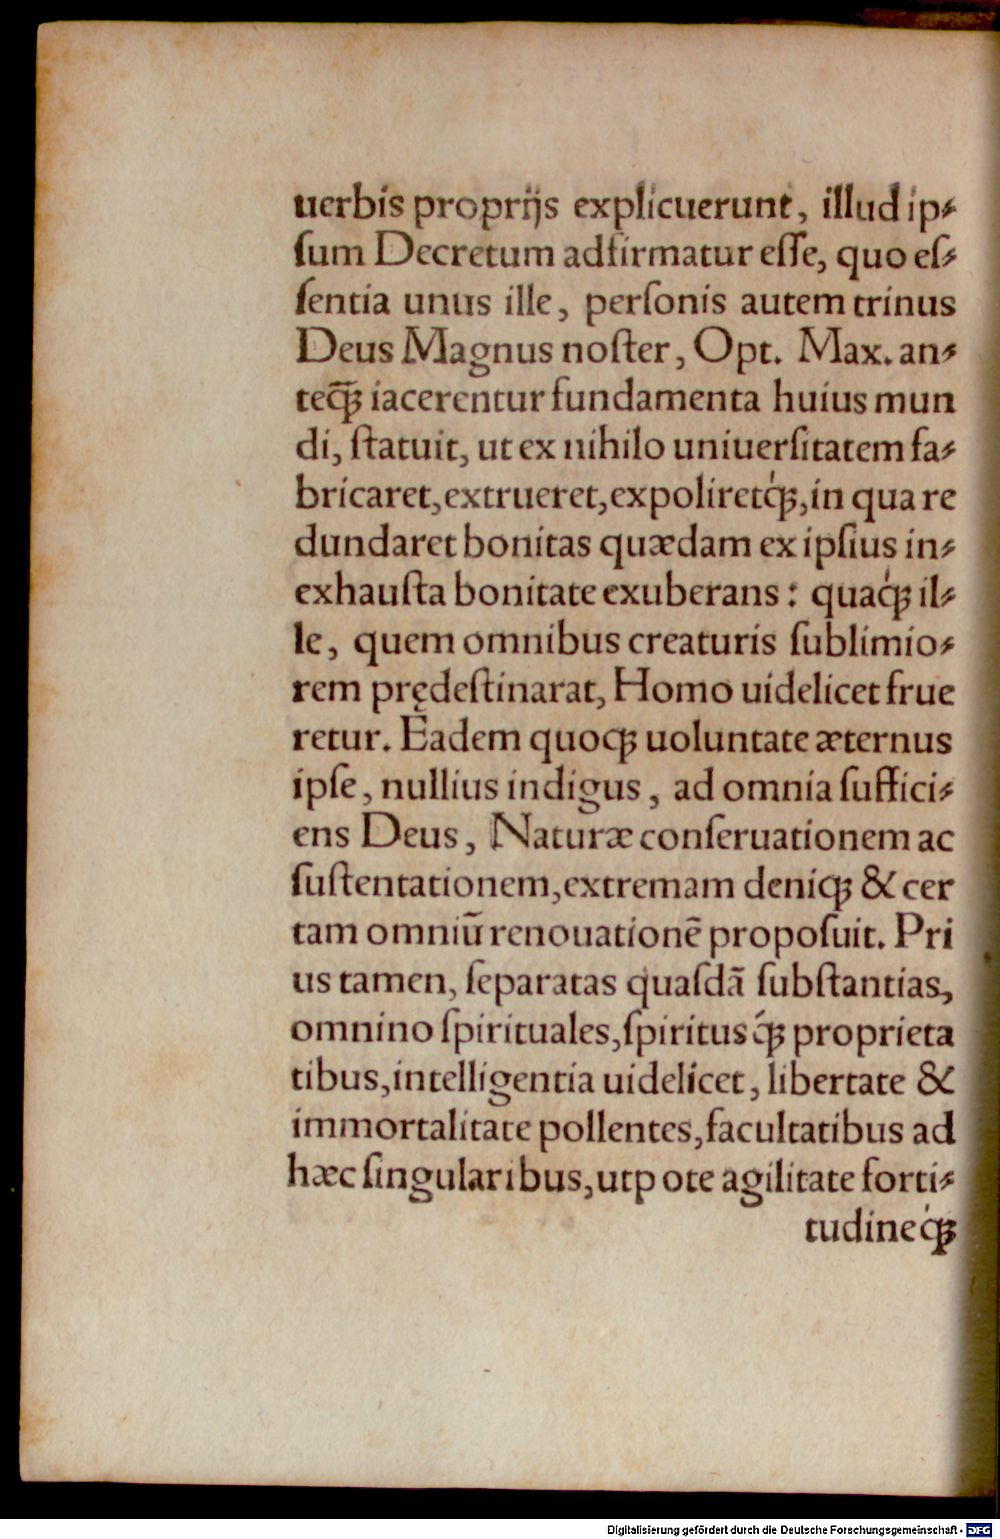 uerbis proprijs explicuerunt, illud ip⸗
ſum Decretum adfirmatur eſſe, quo eſ⸗
ſentia unus ille, perſonis autem trinus
Deus Magnus noſter, Opt. Max. an⸗
teq̃ꝫ iacerentur fundamenta huius mun
di, ſtatuit, ut ex nihilo uniuerſitatem fa⸗
bricaret, extrueret, expoliretq́ꝫ, in qua re
dundaret bonitas quædam ex ipſius in⸗
exhauſta bonitate exuberans: quaq́ꝫ il⸗
le, quem omnibus creaturis ſublimio⸗
rem prędeſtinarat, Homo uidelicet frue
retur. Eadem quoqꝫ uoluntate æternus
ipſe, nullius indigus, ad omnia ſuffici⸗
ens Deus, Naturæ conſeruationem ac
ſuſtentationem, extremam deniqꝫ & cer
tam omniũ renouationẽ propoſuit. Pri
us tamen, ſeparatas quaſdã ſubſtantias,
omnino ſpirituales, ſpiritusq́ꝫ proprieta
tibus, intelligentia uidelicet, libertate &
immortalitate pollentes, facultatibus ad
hæc ſingularibus, utpote agilitate forti⸗
tudineq́ꝫ
Digitalisierung gefördert durch die Deutsche Forschungsgemeinschaft - DFG